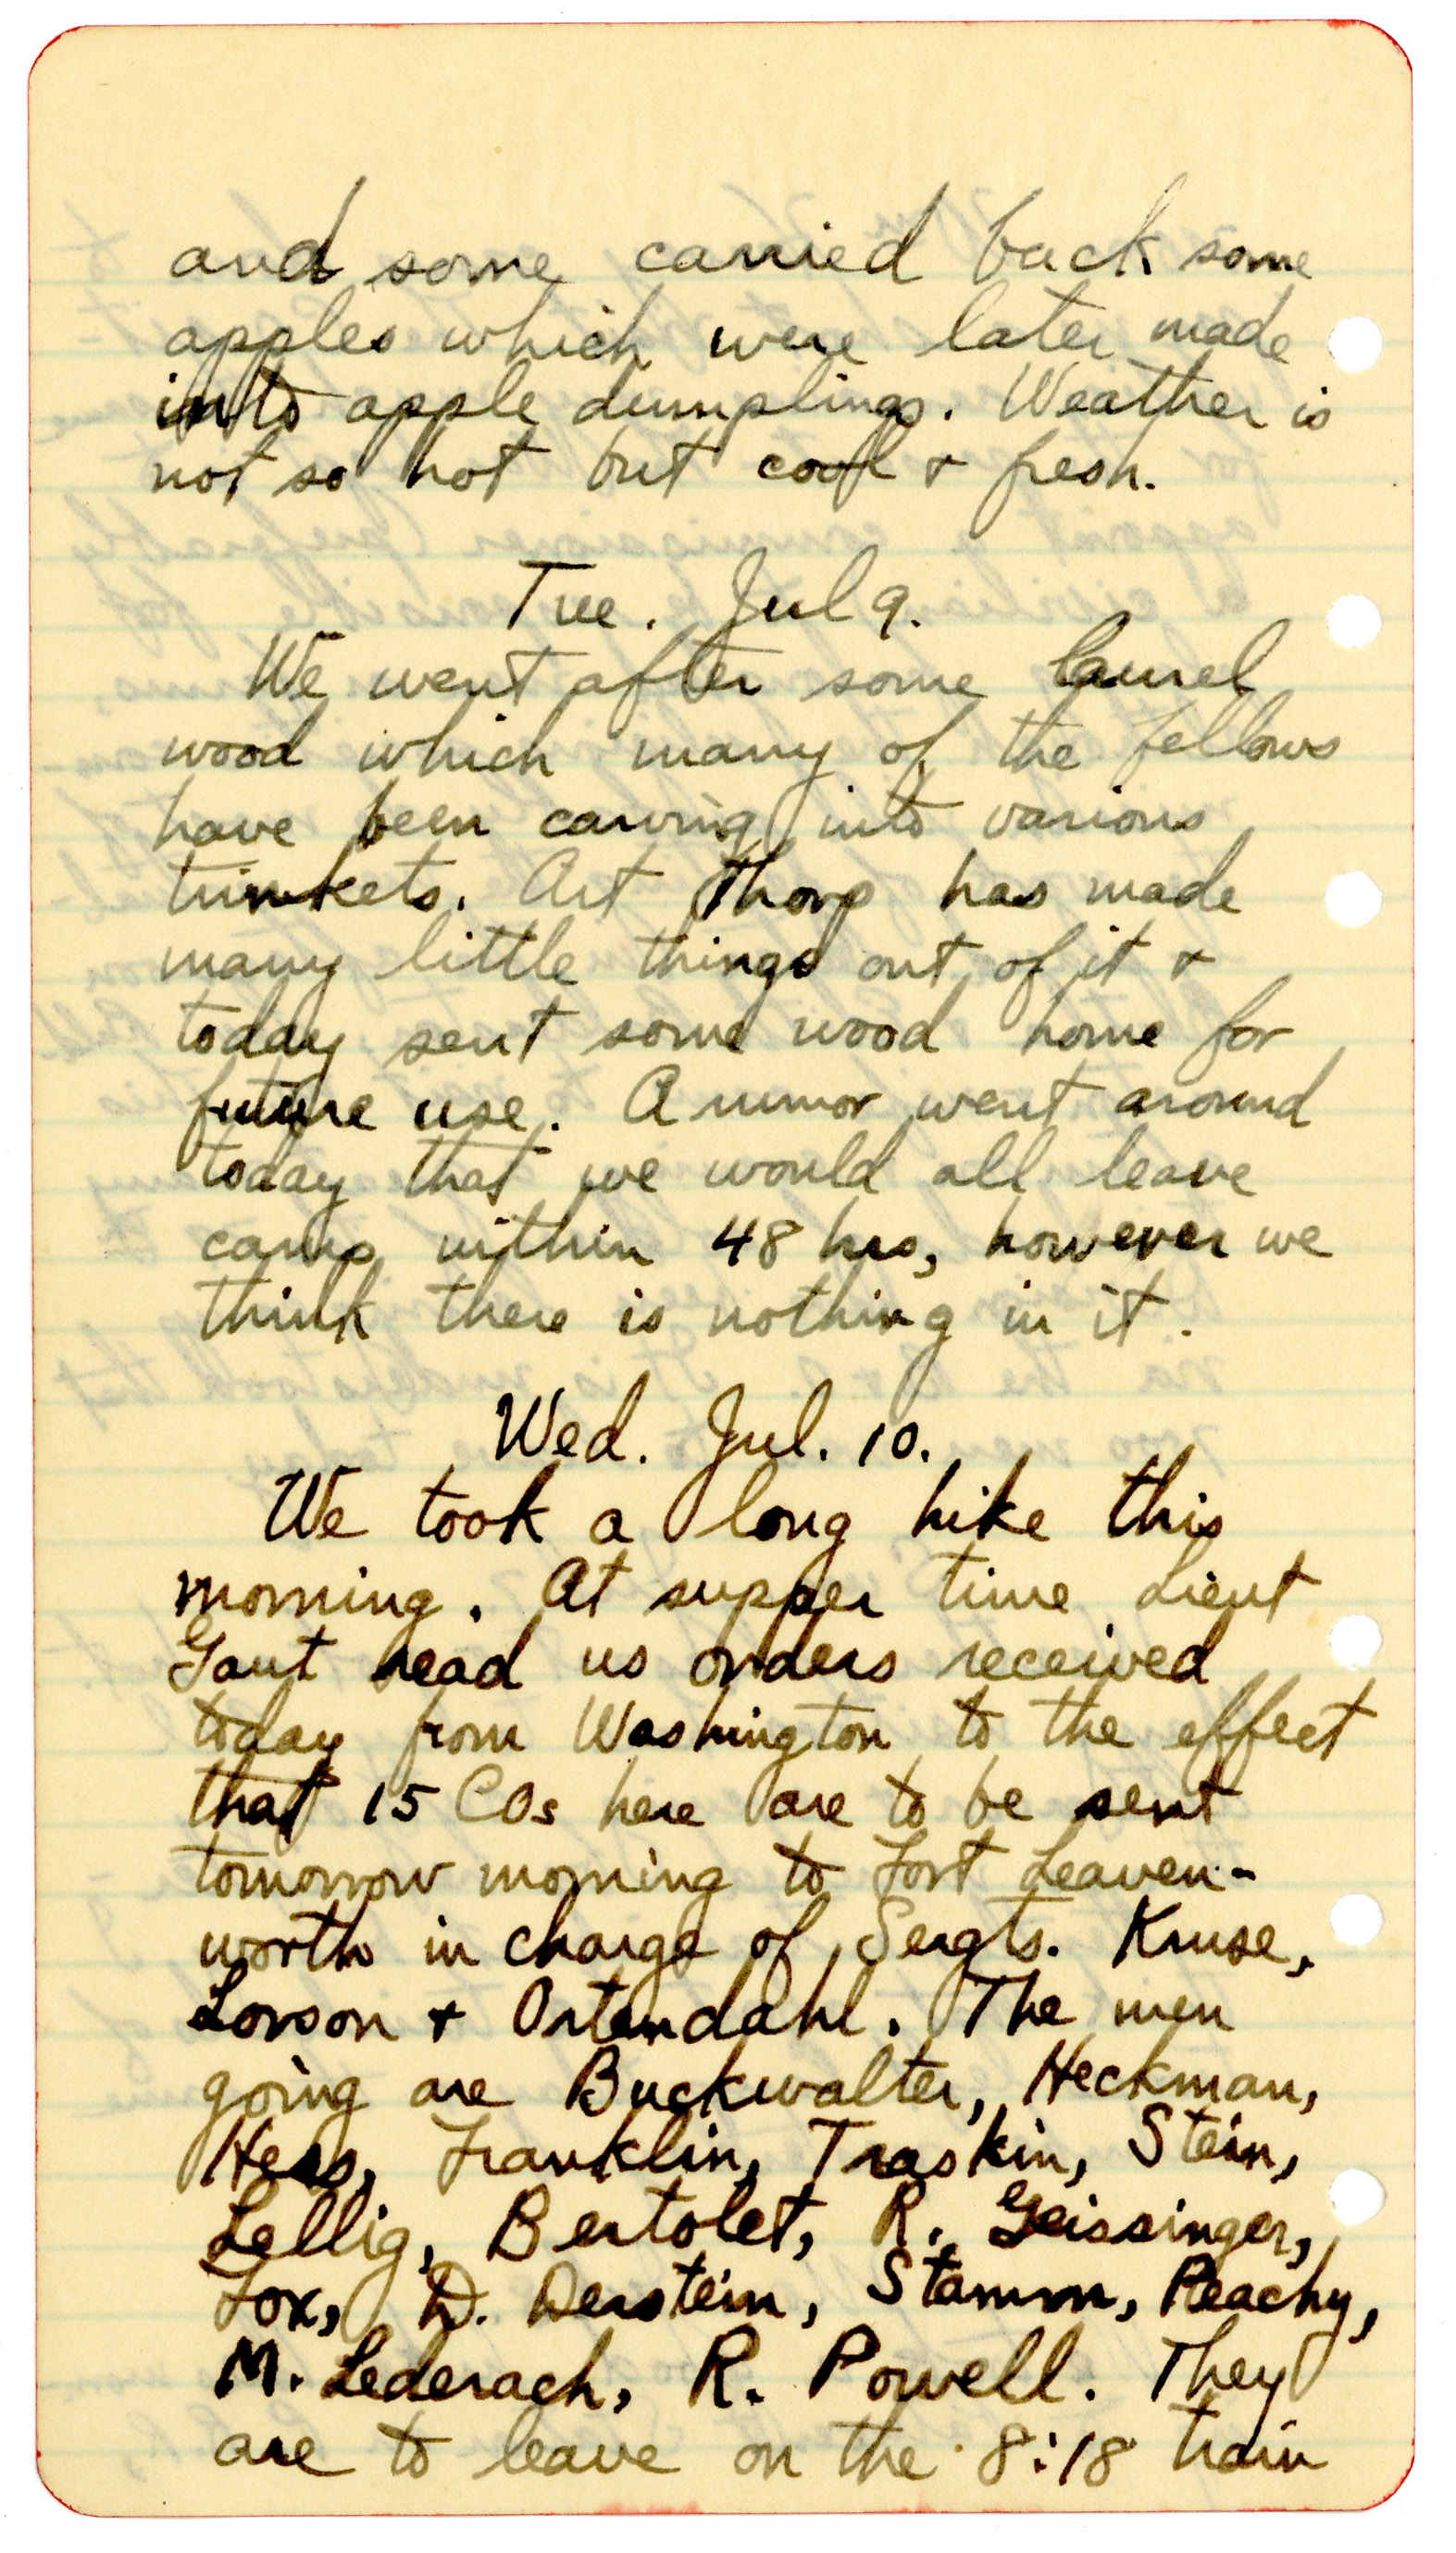 and some carried back some
apples which were later made
into apple dumplings. Weather is
not so hot but cool & fresh.
Tue. Jul 9.
We went after some laurel
wood which many of the fellows
have been carving into various
trinkets. Art Thorp has made
many little things out of it &
today sent some wood home for
future use. A rumor went around
today that we would all leave
camp within 48 hrs, however we
think there is nothing in it.
Wed. Jul. 10.
We took a long hike this
morning. At supper time Lieut
Gaut read us orders received
today from Washington to the effect
that 15 COs here are to be sent
tomorrow morning to Fort Leaven-
worth in charge of Sergts. Kruse,
Lorson & Ostendahl. The men
going are Buckwalter, Heckman,
Hess, Franklin, Traskin, Stein,
Lellig, Bertolet, R. Geissinger,
Fox, D. Derstein, Stamm, Peachy,
M. Lederach, R. Powell. They
are to leave on the 8:18 train